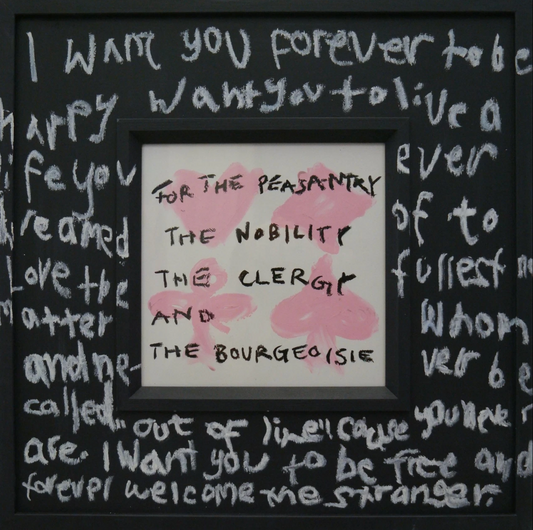 I Want you forever to be
happy want you to live a
life you ever
dreamed of to
Love the fullest no
matter Whom
and ne- ver be
called "out of line" cause you never
are. I Want you to be free and
forever welcome the stranger.
FOR THE PEASANTRY
THE NOBILITY
THE CLERGY
AND
THE BOURGEOISIE